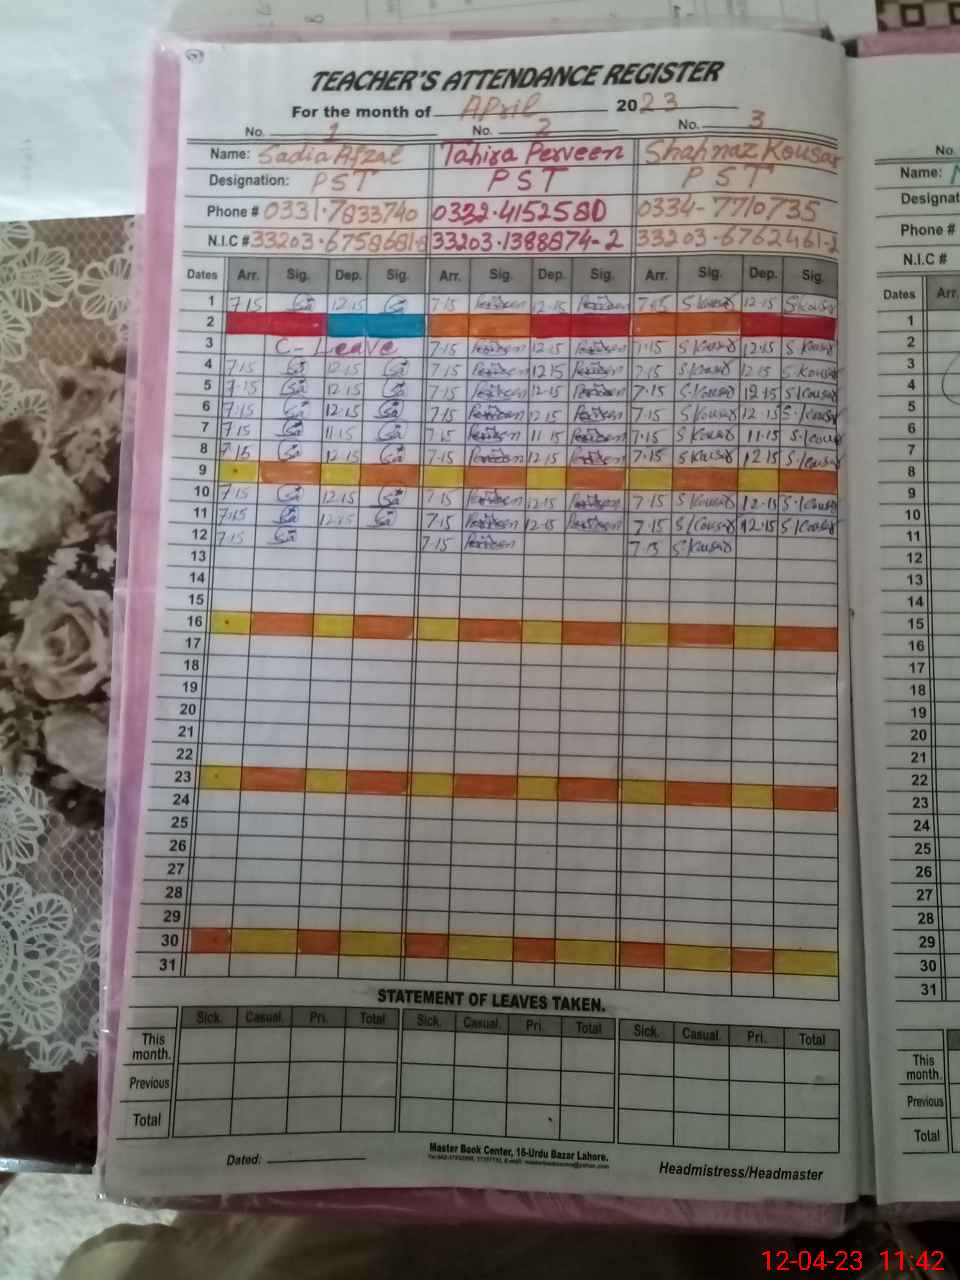 TEACHER'S ATTENDANCE REGISTER
For the month of April 2023
No. 1 No. 2 No. 3
Name: Sadia Afzal Tahira Perveen Shahnaz Kousar
Designation: PST PST PST
Phone # 0331.7833740 0332.4152580 0334-7710735
N.I.C # 33203.6758681-8 33203.1388874-2 33203.6762461-2
Dates Arr. Sig. Dep. Sig. Arr. Sig. Dep. Sig. Arr. Sig. Dep. Sig.
1 7.15 12.15 7.15 Perveen 12.15 Perveen 7.15 S.Kousar 12.15 S.Kousar
2
3 C-Leave 7.15 Perveen 12.15 Perveen 7.15 S.Kousar 12.15 S.Kousar
4 7.15 12.15 7.15 Perveen 12.15 Perveen 7.15 S.Kousar 12.15 S.Kousar
5 7.15 12.15 7.15 Perveen 12.15 Perveen 7.15 S.Kousar 12.15 S.Kousar
6 7.15 12.15 7.15 Perveen 12.15 Perveen 7.15 S.Kousar 12.15 S.Kousar
7 7.15 11.15 7.15 Perveen 11.15 Perveen 7.15 S.Kousar 11.15 S.Kousar
8 7.15 12.15 7.15 Perveen 12.15 Perveen 7.15 S.Kousar 12.15 S.Kousar
9
10 7.15 12.15 7.15 Perveen 12.15 Perveen 7.15 S.Kousar 12.15 S.Kousar
11 7.15 12.15 7.15 Perveen 12.15 Perveen 7.15 S.Kousar 12.15 S.Kousar
12 7.15 7.15 Perveen 7.15 S.Kousar
13
14
15
16
17
18
19
20
21
22
23
24
25
26
27
28
29
30
31
STATEMENT OF LEAVES TAKEN.
Sick. Casual. Pri. Total Sick. Casual. Pri. Total Sick. Casual. Pri. Total
This month.
Previous
Total
Dated:
Master Book Center, 16-Urdu Bazar Lahore.
Headmistress/Headmaster
No.
Name:
Designat
Phone #
N.I.C #
Dates Arr.
1
2
3
4
5
6
7
8
9
10
11
12
13
14
15
16
17
18
19
20
21
22
23
24
25
26
27
28
29
30
31
This month.
Previous
Total
12-04-23 11:42